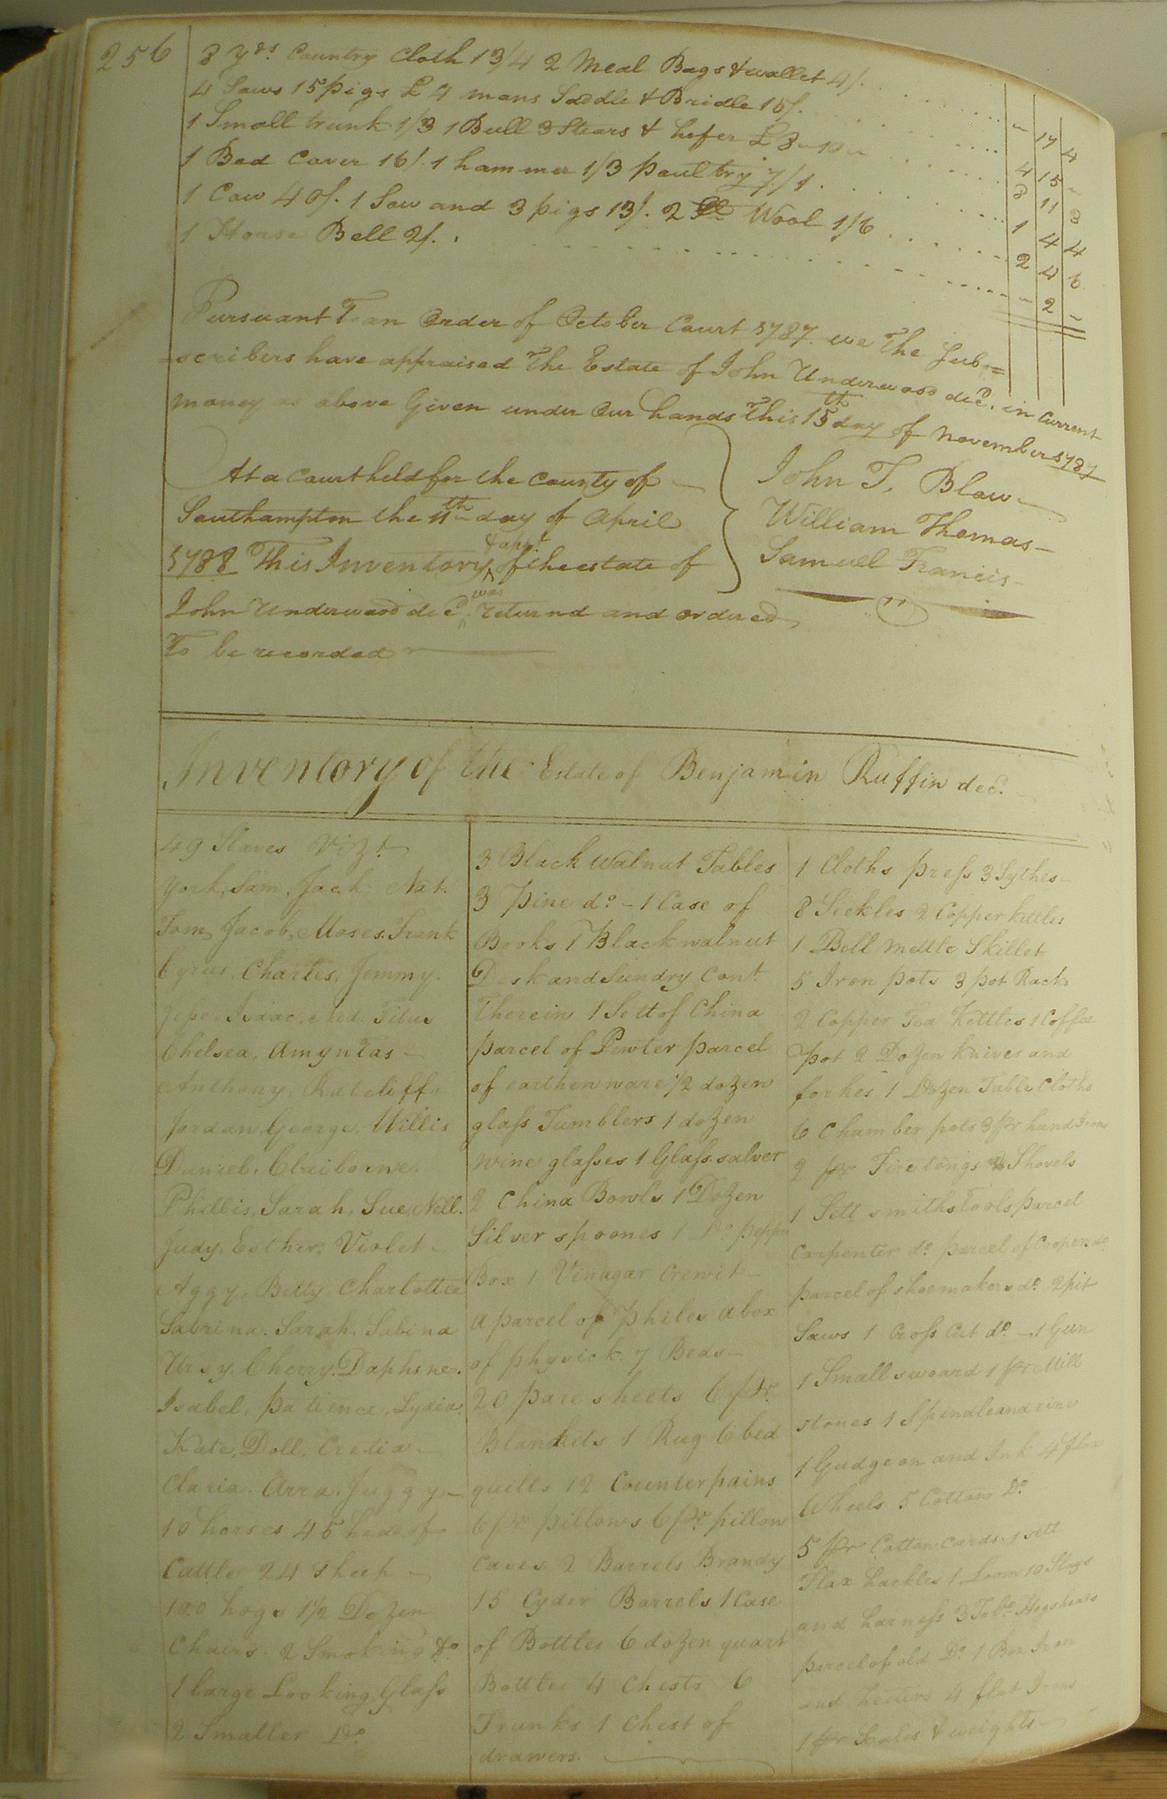 256
3 yds. Country Cloth 13/4 2 Meal Bags & wallet 4/. - 17 4
4 Saws 15 pigs £4 mans Saddle & Bridle 15/. 4 15 -
1 Small trunk 1/3 1 Bull 3 Stears & hefer £3-10- 3 11 3
1 Bed Cover 16/. 1 hammer 1/3 poultry 7/1. 1 4 4
1 Cow 40/. 1 Sow and 3 pigs 13/. 2 Wool 1/6 2 4 6
1 Horse Bell 2/. - 2 -
Pursuant T an Order of October Court 1787 we The Sub=
=scribers have appraised The Estate of John Underwood decd. in Current
money as above Given under Our hands This 15th day of November 1787
At a Court held for the County of
Southampton the 11th day of April
1788 This Inventory & appt. of the estate of
John Underwood decd. was returnd and ordered
To be recorded
John T. Blow
William Thomas
Samuel Francis
Inventory of the Estate of Benjamin Ruffin decd.
49 Slaves Vizt.
York, Sam, Jack, Nat.
Tom, Jacob, Moses, Frank
Cyrus, Charles, Jemmy.
Isaac, Ned, Titus
Chelsea, Amyntas
Anthony, Ratcliff
Jordan, George, Willis
Daniel, Claiborne.
Phillis, Sarah, Sue, Nell.
Judy, Esther, Violet
Aggy, Betty, Charlotte
Sabrina, Sarah, Sabina
Ursy, Cherry, Daphne.
Isabel, Patience, Lydia
Kate, Doll, Cretia
Claria, Arra, Juggy
10 horses 45 head of
Cattle 24 Sheep
100 hogs 1 1/2 Dozen
Chairs 2 Smoking do.
1 large Looking Glass
2 Smaller Do.
3 Black Walnut Tables
3 Pine do. - 1 Case of
Books 1 Black walnut
Desk and Sundry Cont.
Therein 1 Sett of China
parcel of Pewter parcel
of earthenware 1/2 dozen
glass Tumblers 1 dozen
wine glasses 1 Glass salver
2 China Bowls 1 Dozen
Silver spoones 1 Do. pepper
Box 1 Vinagar Crewit
A parcel of Philes a box
of physick 7 Beds
20 pare sheets 6 pr.
Blankets 1 Rug 6 bed
quilts 12 Counterpains
6 pr pillows 6 pr. pillow
Cases 2 Barrels Brandy
15 Cyder Barrels 1 Case
of Bottles 6 dozen quart
Bottles 4 Chests 6
Trunks 1 Chest of
drawers.
1 Cloths press 3 Sythes
8 Sickles 2 Copper kettles
1 Bell mettle Skillet
5 Iron pots 3 pot Racks
2 Copper Tea Kettles 1 Coffee
pot 2 Dozen knives and
forkes 1 Dozen Table Cloths
6 Chamber pots 3 pr hand Irons
2 pr Fire tongs & Shovels
1 Sett smiths Tools parcel
Carpenter do. parcel of Coopers do.
parcel of shoemakers do. 2 pit
Saws 1 Cross Cut do. - 1 Gun
1 Small sword 1 pr Mill
stones 1 Spindle and rine
1 Gudgeon and Ink 4 flax
Wheels 5 Cotton Do.
5 pr Cotton Cards 1 sett
Flax hackles 1 Loom 10 Slays
and harness 3 Tobo. Hogsheads
parcel of old Do. 1 Box Iron
and heeters 4 flat Irons
1 pr Scales & weights